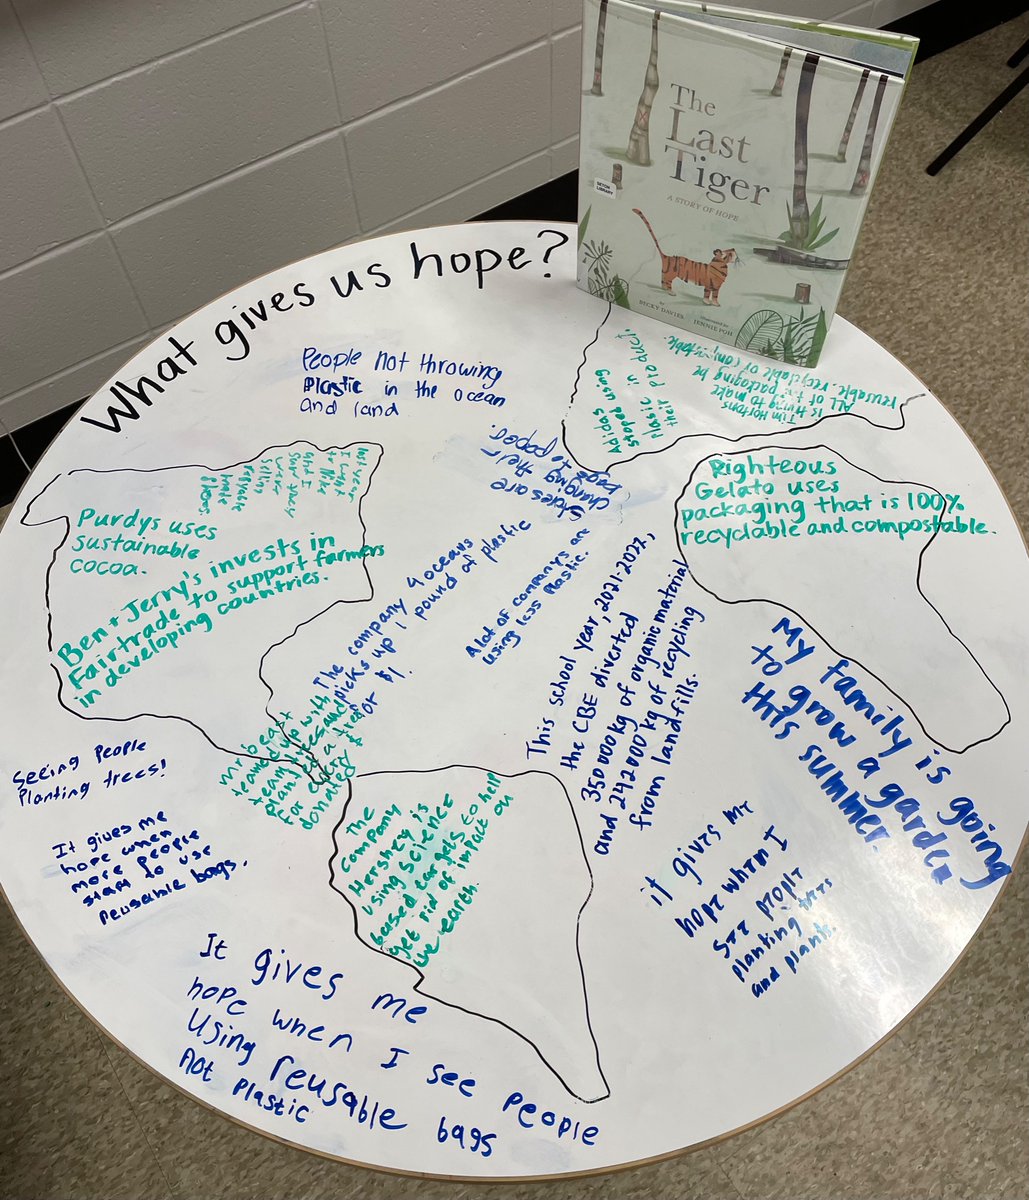 The
Last
Tiger
A STORY OF HOPE
SETON
LIBRARY
BY
BECKY DAVIES
Illustrated by
JENNIE POH
What gives us hope?
People not throwing
plastic in the ocean
and land
Adidas using
stopped using
plastic in
their product.
Tim Hortons
is trying to make
ALL of its packaging be
reusable, recyclable or compostable.
Stores are
changing their
bags to paper.
Righteous
Gelato uses
packaging that is 100%
recyclable and compostable.
Purdys uses
sustainable
cocoa.
Ben + Jerry's invests in
Fairtrade to support farmers
in developing countries.
The company 4oceans
picks up 1 pound of plastic
for $1.
A lot of companys are
using less plastic.
This school year, 2021-2022,
the CBE diverted
350 000 kg of organic material
and 242 000 kg of recycling
from landfills.
My family is going
to grow a garden
this summer.
Mr beast
teamed up with
team trees and
plants a tree
for every $1
donated
Seeing people
Planting trees!
It gives me
hope when
more people
start to use
reusable bags.
The
company
Hershey is
using science
based targets to help
get rid of impact on
the earth.
it gives me
hope when I
see people
planting trees
and plants.
It gives me
hope when I see people
Using reusable bags
not plastic